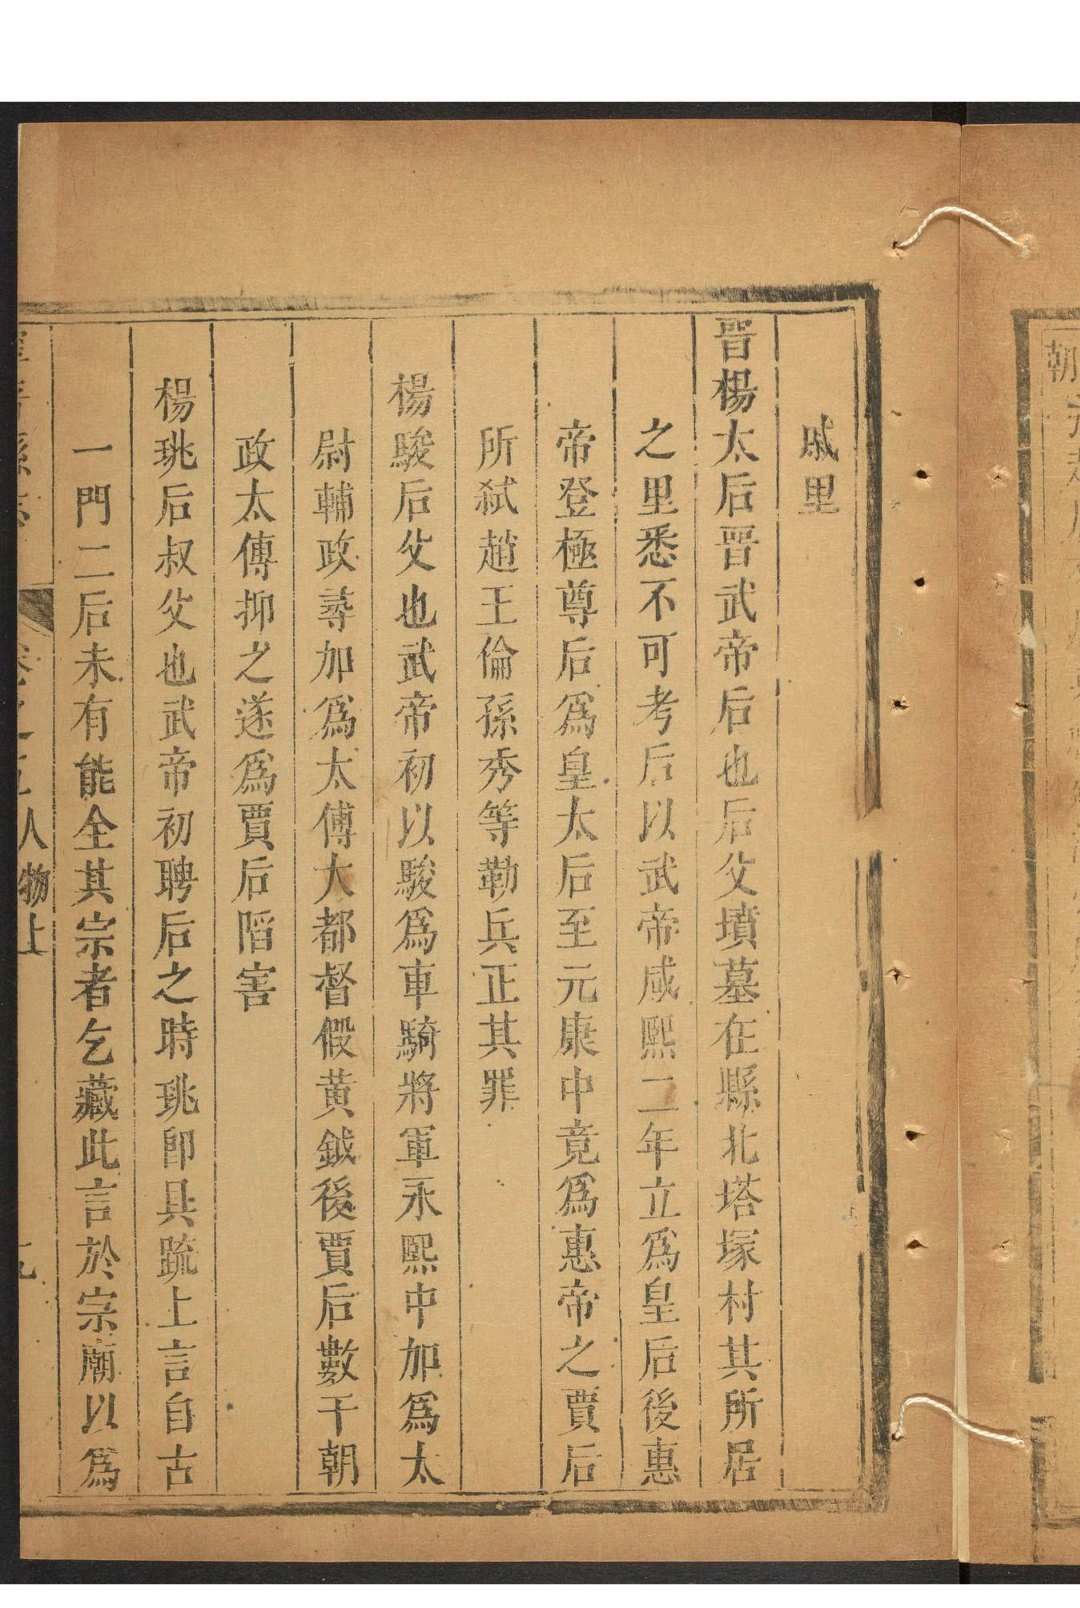 戚里
晋楊太后晋武帝后也后父墳墓在縣北塔塚村其所居
之里悉不可考后以武帝咸熙二年立為皇后後惠
帝登極尊后為皇太后至元康中竟為惠帝之賈后
所弑趙王倫孫秀等勒兵正其罪
楊駿后父也武帝初以駿為車騎將軍永熙中加為太
尉輔政尋加為太傅大都督假黄鉞後賈后數干朝
政太傅抑之遂為賈后陷害
楊珧后叔父也武帝初聘后之時珧即具疏上言自古
一門二后未有能全其宗者乞藏此言於宗廟以為
人物上
朝